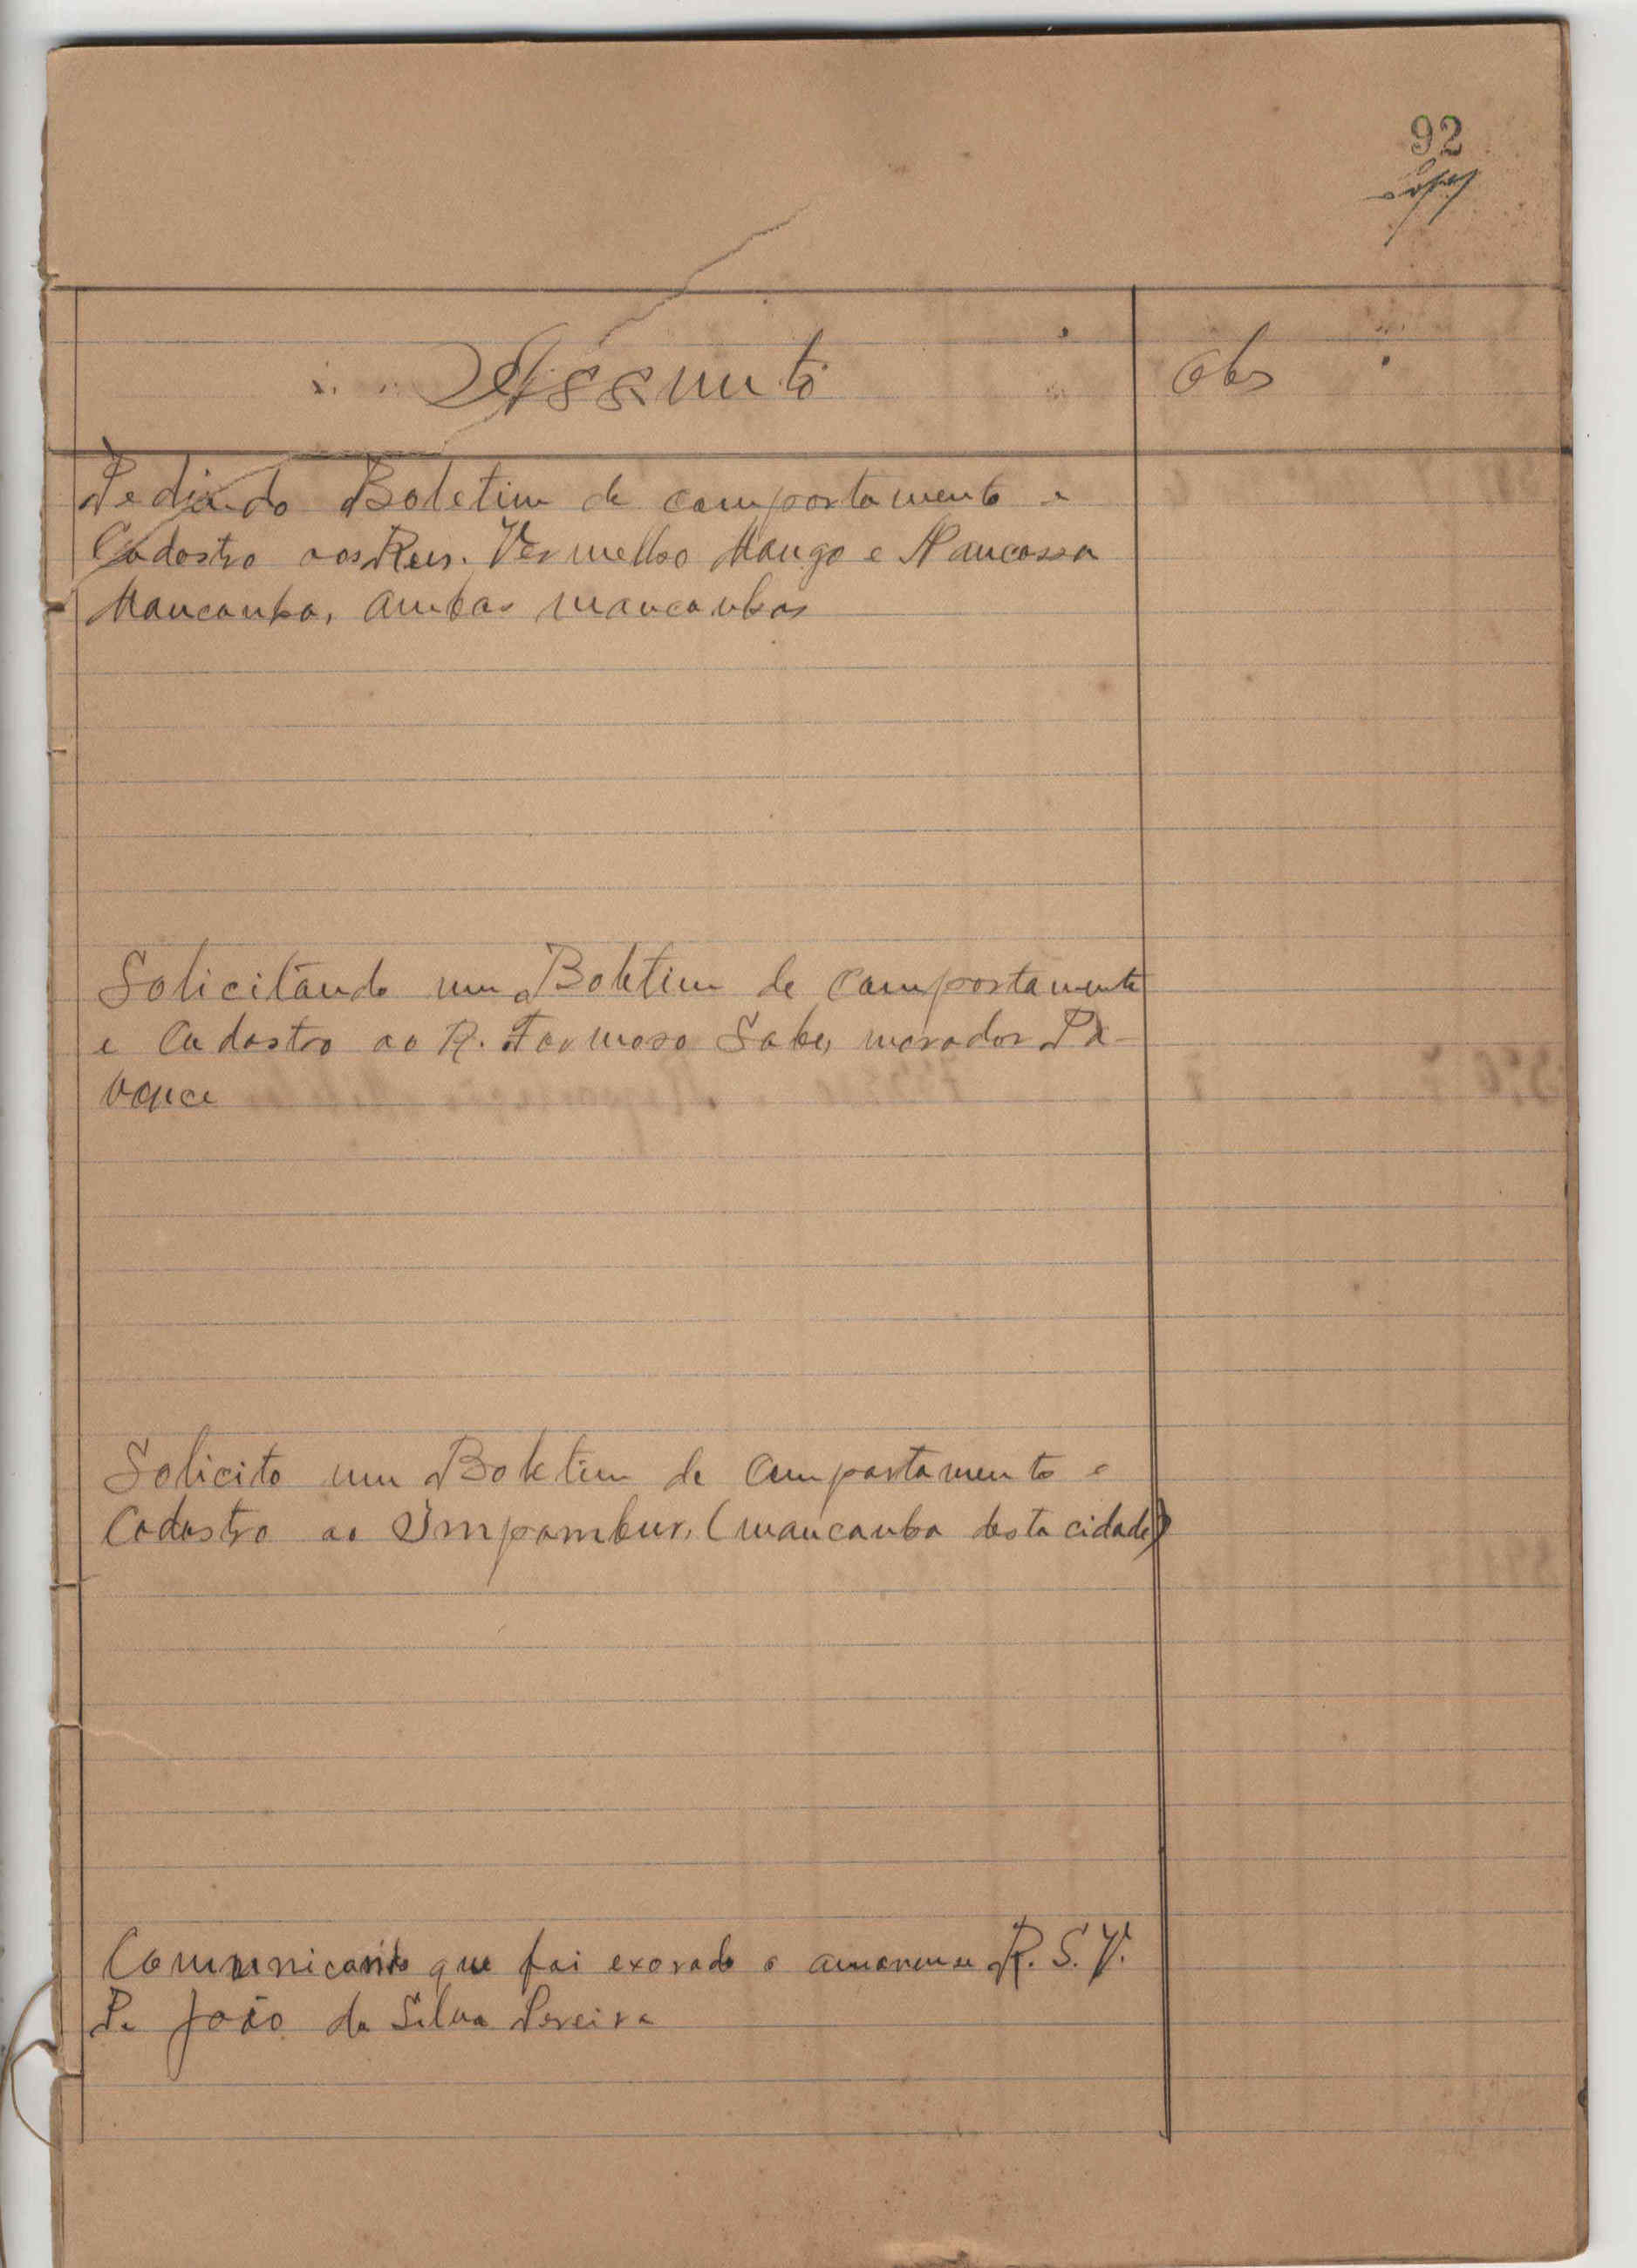 92
Assunto
Obs
Pedindo Boletim de comportamento e
Cadastro aos Reus. Vermelho Mango e
Mancanha, ambas mancanhas
Solicitando um Boletim de Comportamento
e Cadastro ao R. Formoso Sabe, morador
Solicito um Boletim de Comportamento e
Cadastro ao Impambur, (mancanha desta cidade)
Comunicando que foi exorado o R. S. V.
P. João da Silva Pereira